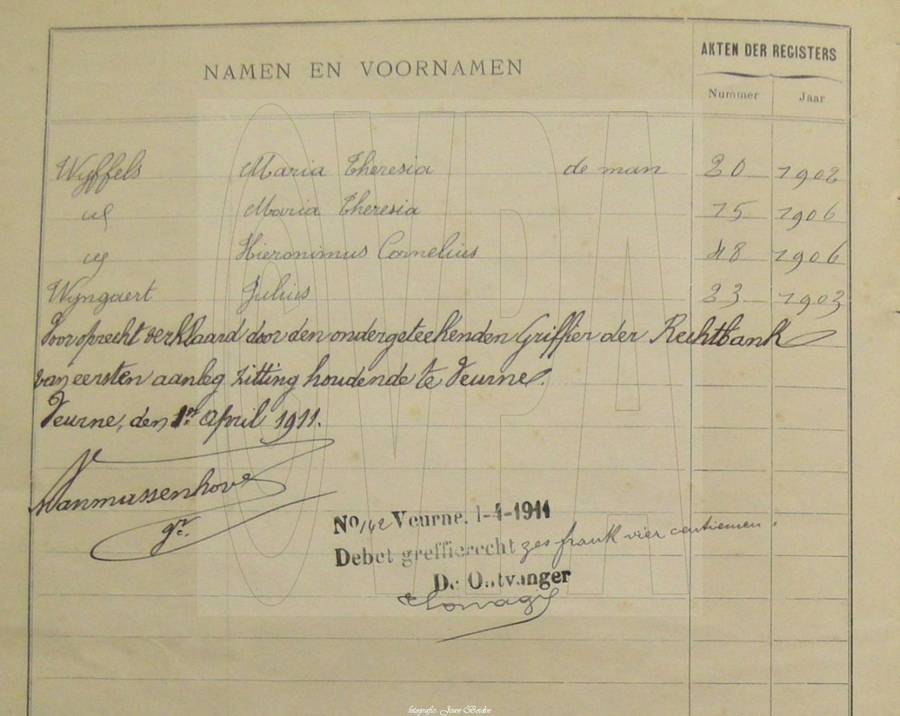 NAMEN EN VOORNAMEN
AKTEN DER REGISTERS
Nummer Jaar
Wyffels Maria Theresia de man 20 1902
id Maria Theresia 15 1906
id Hieronimus Cornelius 48 1906
Wyngaert Julius 23 1903
Voor oprecht verklaard door den ondergeteekenden Griffier der Rechtbank
van eersten aanleg zitting houdende te Veurne.
Veurne, den 1er April 1911.
Vanmussenhove
gr.
No 142 Veurne, 1-4-1911
Debet greffierecht zes frank vier centiemen.
De Ontvanger
fotografie: Joan Boidin
CVPA